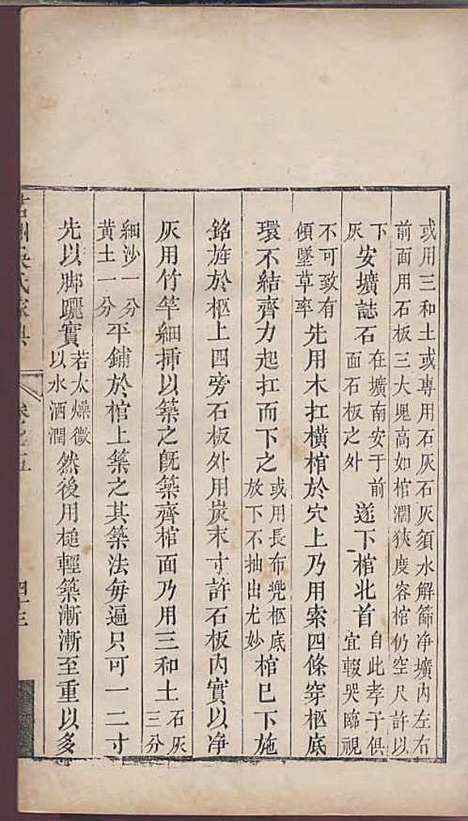 或用三和土或專用石灰石灰須水解篩淨壙內左右
前面用石板三大堄高如棺濶狹度容棺仍空尺許以
下 安壙誌石 在壙南安于前 遂下棺北首 自此孝子俱
灰 面石板之外 宜輟哭臨視
不可致有 先用木扛橫棺於穴上乃用索四條穿柩底
傾墜草率
環不結齊力起扛而下之 或用長布兜柩底 棺巳下施
放下不抽出尤妙
銘旌於柩上四旁石板外用炭末寸許石板內實以净
灰用竹竿細揷以築之旣築齊棺面乃用三和土 石灰
三分
細沙一分 平鋪於棺上築之其築法每遍只可一二寸
黃土一分
先以脚躧實 若太燥微 然後用槌輕築漸漸至重以多
以水洒潤
茗洲吳氏家典 卷之五 四十三